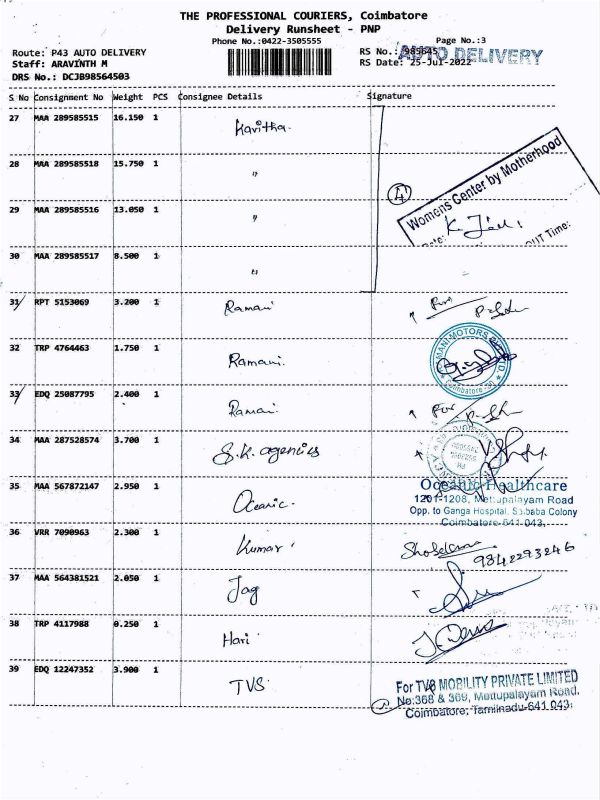 THE PROFESSIONAL COURIERS, Coimbatore
Delivery Runsheet - PNP
Phone No.:0422-3505555
Page No.:3
Route: P43 AUTO DELIVERY
RS No.: 985645
AUTO DELIVERY
Staff: ARAVINTH M
RS Date: 25-Jul-2022
DRS No.: DCJB98564503
S No Consignment No Weight PCS Consignee Details Signature
27 MAA 289585515 16.150 1 Kavitha.
28 MAA 289585518 15.750 1 "
29 MAA 289585516 13.050 1 "
4
Womens Center by Motherhood
OUT Time:
30 MAA 289585517 8.500 1 "
31 RPT 5153069 3.200 1 Ramani For
32 TRP 4764463 1.750 1 Ramani.
MANI MOTORS
Coimbatore
33 EDQ 25087795 2.400 1 Ramani For
34 MAA 287528574 3.700 1 S.K. agencies
35 MAA 567872147 2.950 1 Oceanic.
Oceanic Healthcare
1201-1208, Mettupalayam Road
Opp. to Ganga Hospital, Saibaba Colony
Coimbatore-641 043.
36 VRR 7090963 2.300 1 Kumar
9842293246
37 MAA 564381521 2.050 1 Jag
38 TRP 4117988 0.250 1 Hari
39 EDQ 12247352 3.900 1 TVS
For TVS MOBILITY PRIVATE LIMITED
No:368 & 369, Mettupalayam Road.
Coimbatore, Tamilnadu-641 043.